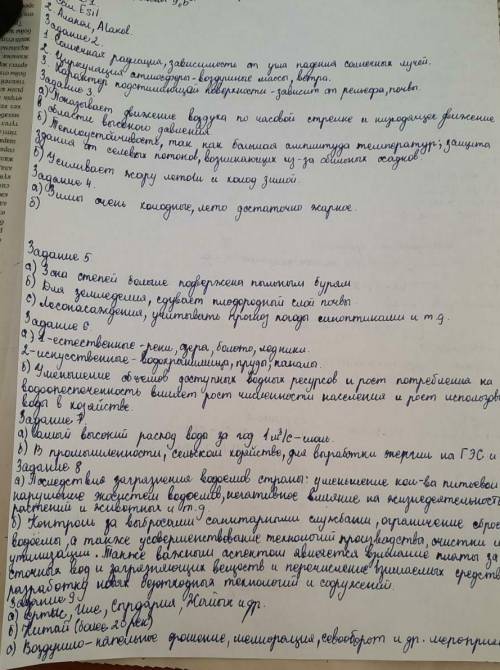 2. Сам. Esil
2. Алакол, Alakol.
Задание 2.
1. Солнечная радиация, зависимость от угла падения солнечных лучей.
2. Циркуляция атмосферы - воздушные массы, ветра.
3. Характер подстилающей поверхности - зависит от рельефа, почвы.
Задание 3.
а) Показывает движение воздуха по часовой стрелке и нисходящее движение
в области высокого давления
б) Теплоустойчивость, так как большая амплитуда температур; защита
здания от селевых потоков, возникающих из-за обильных осадков
Задание 4.
б) Усиливает жару летом и холод зимой.
а) Зимы очень холодные, лето достаточно жаркое.
б)
Задание 5
а) Зона степей больше подвержена пыльным бурям
б) Для земледелия, сдувает плодородный слой почвы
с) Лесонасаждения, учитывать прогноз погоды синоптиками и т.д.
Задание 6
а) 1-естественные - реки, озера, болото, ледники.
2-искусственные - водохранилища, пруды, каналы.
б) Уменьшение объемов доступных водных ресурсов и рост потребления на
водообеспеченность влияет рост численности населения и рост использов
воды в хозяйстве.
Задание 7
а) самый высокий расход воды за год 1 м³/с -
б) В промышленности, сельском хозяйстве, для выработки энергии на ГЭС и
Задание 8
а) Последствия загрязнения водоемов страны: уменьшение кол-ва питьевой
нарушение экосистем водоемов, негативное влияние на жизнедеятельность
растений и животных и т.д
б) Контроль за выбросами санитарными службами, ограничение сброс
водоемы, а также усовершенствование технологий производства, очистки и
утилизации. Также важным аспектом является взимание платы за
сточных вод и загрязняющих веществ и перечисление взимаемых средств
разработку новых безотходных технологий и сооружений.
Задание 9
а) Ертыс, Или, Сырдария, Жайык и др.
б) Китай (более 20 рек)
с) Воздушно-капельное орошение, мелиорация, севооборот и др. мероприят